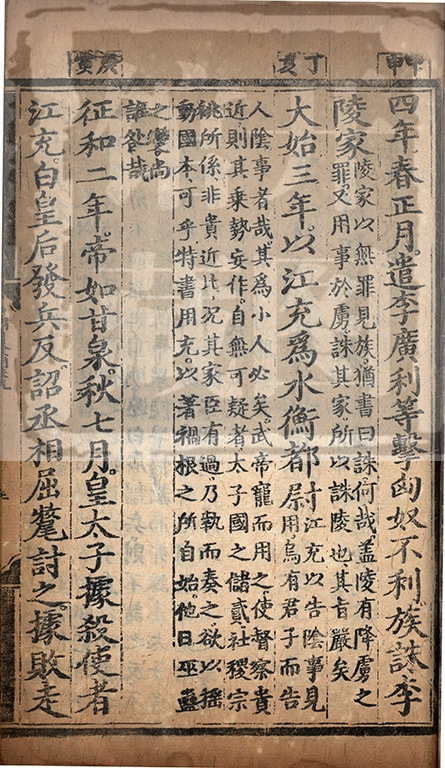 甲申
四年春正月。遣李廣利等擊匈奴不利。族誅李
陵家
陵家以無罪見族。猶書曰誅何哉。蓋陵有降虜之
罪。又用事於虜。誅其家所以誅陵也。其旨嚴矣
丁亥
大始三年。以江充爲水衡都尉
江充以告陰事見
用。烏有君子而告
人陰事者哉。其爲小人必矣。武帝寵而用之。使督察貴
近。則其乘勢妄作。自無可疑者。太子國之儲貳。社稷宗
祧所係。非貴近比。况其家臣有過。乃執而奏之。欲以搖
動國本。可乎。特書用充。以著禍根之所自始。他日巫蠱
之變。尚
誰咎哉
庚寅
征和二年。帝如甘泉。秋七月。皇太子據殺使者
江充。白皇后發兵反。詔丞相屈氂討之。據敗走